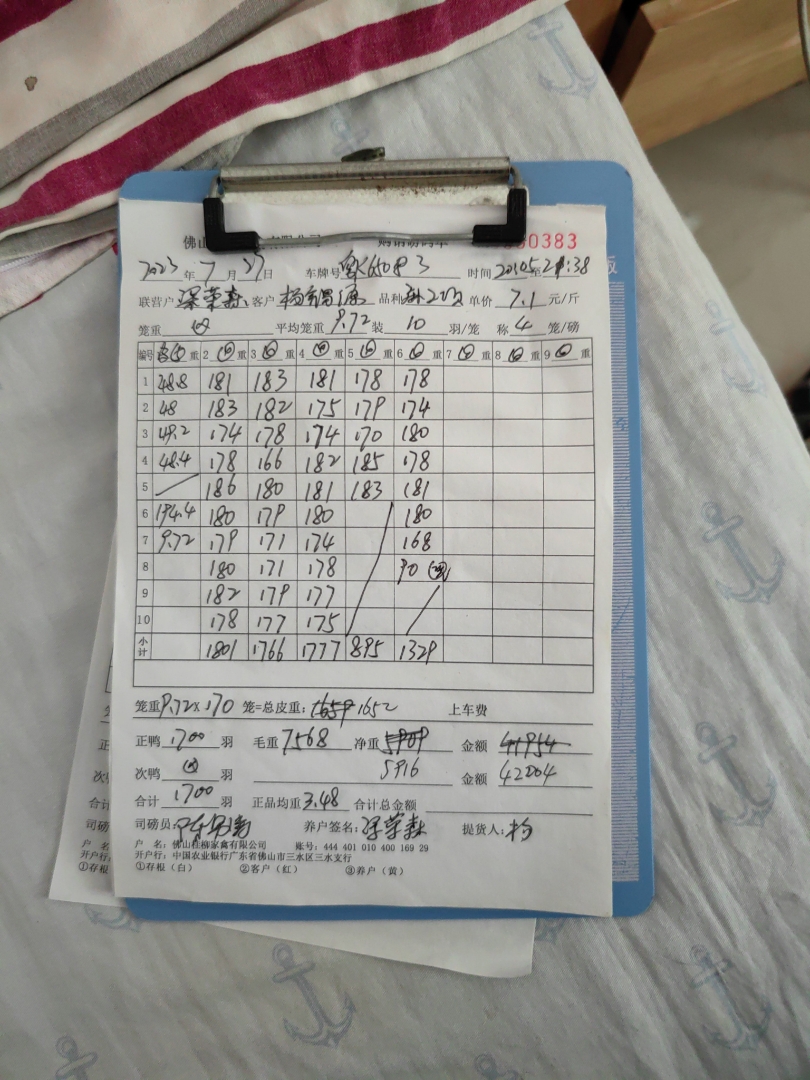 佛山
0383
2023年7月27日 车牌号 时间20:05至21:38
联营户 客户 品种 单价7.1元/斤
笼重 四 平均笼重9.72装10羽/笼 称4笼/磅
编号 重 2 四 重 3 四 重 4 四 重 5 四 重 6 四 重 7 四 重 8 四 重 9 四 重
1 48.8 181 183 181 178 178
2 48 183 182 175 179 174
3 49.2 174 178 174 170 180
4 48.4 178 166 182 185 178
5 186 180 181 183 181
6 194.4 180 179 180 180
7 9.72 179 171 174 168
8 180 171 178 90
9 182 179 177
10 178 177 175
小计 1801 1766 1777 895 1329
笼重9.72×170笼=总皮重:1659 1652 上车费
正鸭1700羽 毛重7568 净重5909 金额41954
次鸭 四 羽 5916 金额42004
合计1700羽 正品均重3.48 合计总金额
司磅员: 养户签名: 提货人:杨
户 名:佛山桂柳家禽有限公司 账号:444 401 010 400 169 29
开户行:中国农业银行广东省佛山市三水区三水支行
①存根(白) ②客户(红) ③养户(黄)